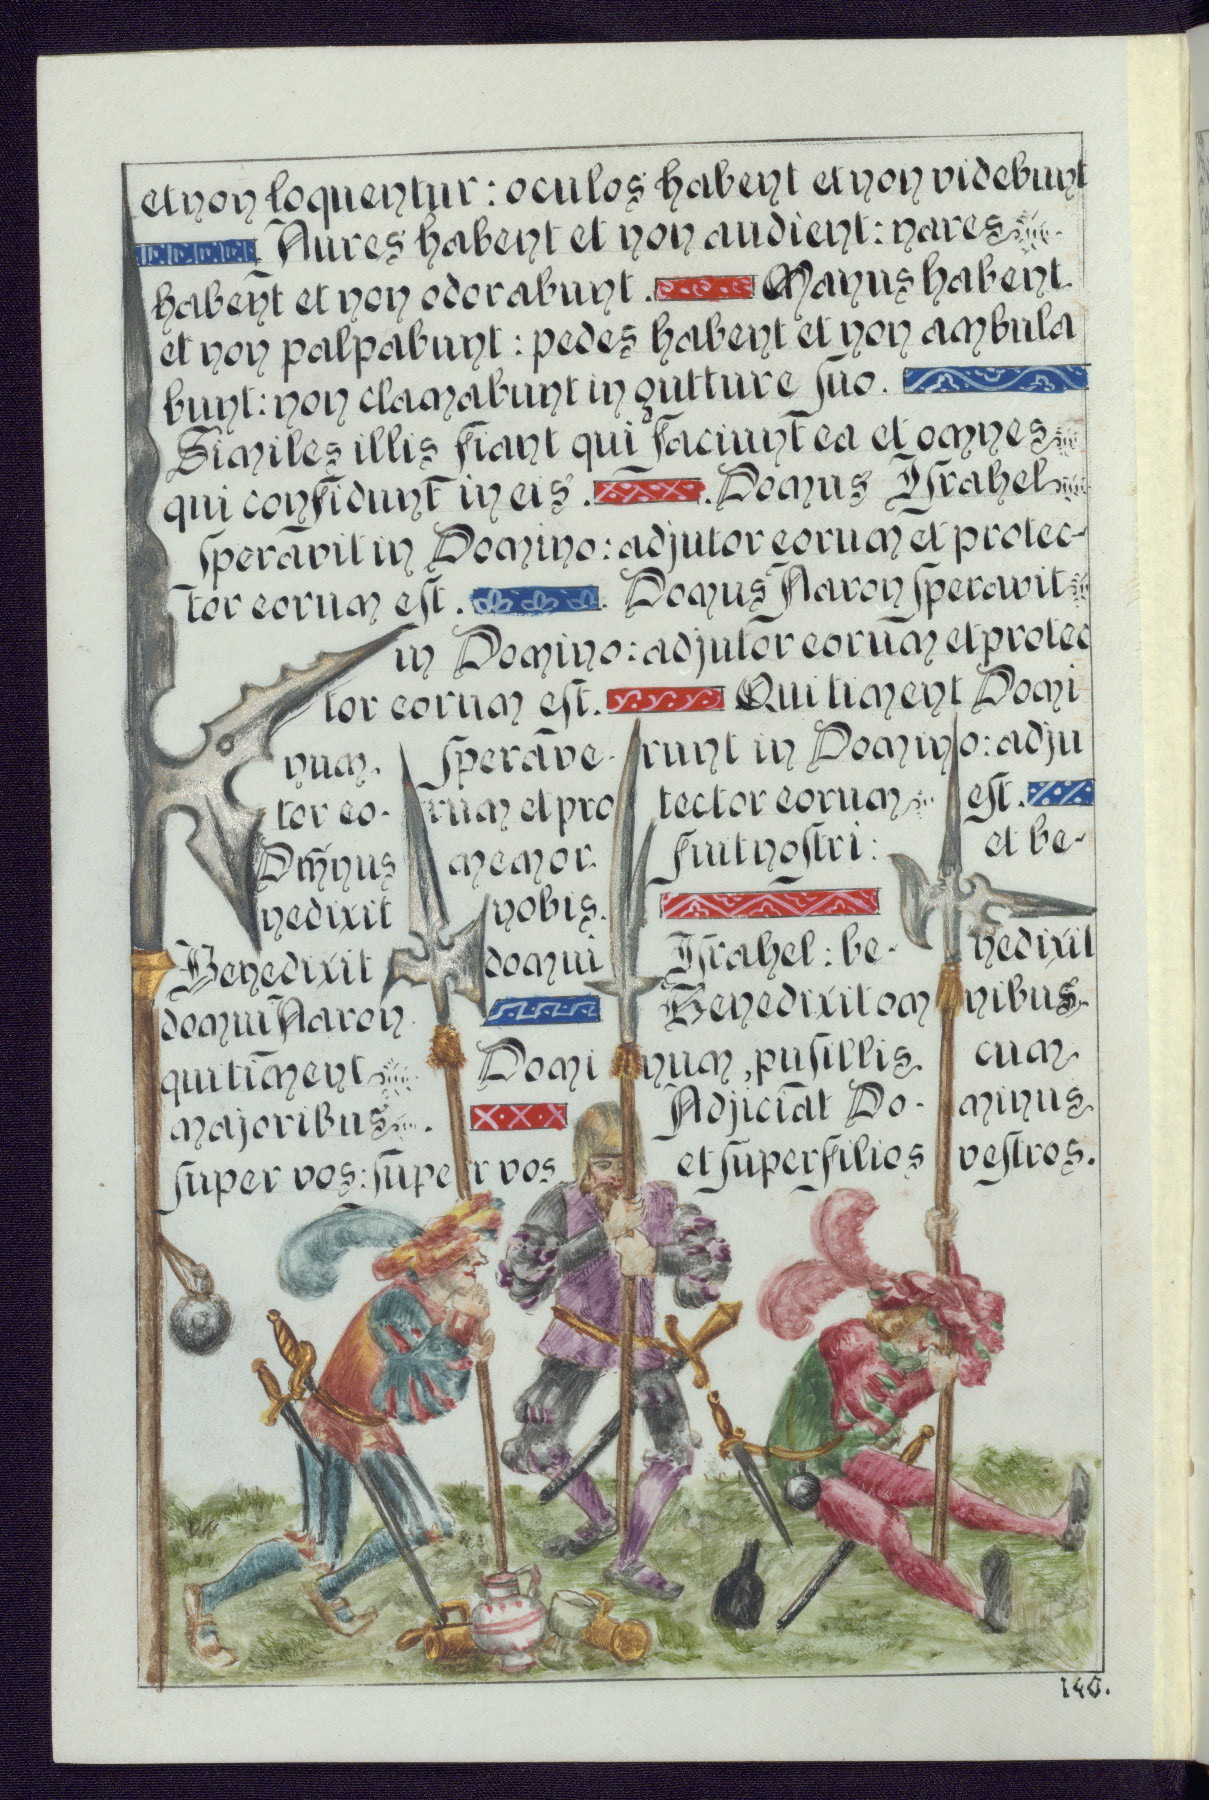 et non loquentur: oculos habent et non videbunt
Aures habent et non audient: nares
habent et non odorabunt. Manus habent
et non palpabunt: pedes habent et non ambula
bunt: non clamabunt in gutture suo.
Similes illis fiant qui faciunt ea et omnes
qui confidunt in eis. Domus Israhel
speravit in Domino: adjutor eorum et protec-
tor eorum est. Domus Aaron speravit
in Domino: adjutor eorum et protec
tor eorum est. Qui timent Domi
num. sperave- runt in Domino: adju
tor eo- rum et pro tector eorum est.
Dmnus memor fuit nostri: et be-
nedixit nobis.
Benedixit domui Israhel: be- nedixit
domui Aaron Benedixit om nibus
qui timent Domi num, pusillis cum
majoribus. Adjiciat Do- minus
super vos: super vos et super filios vestros.
140.